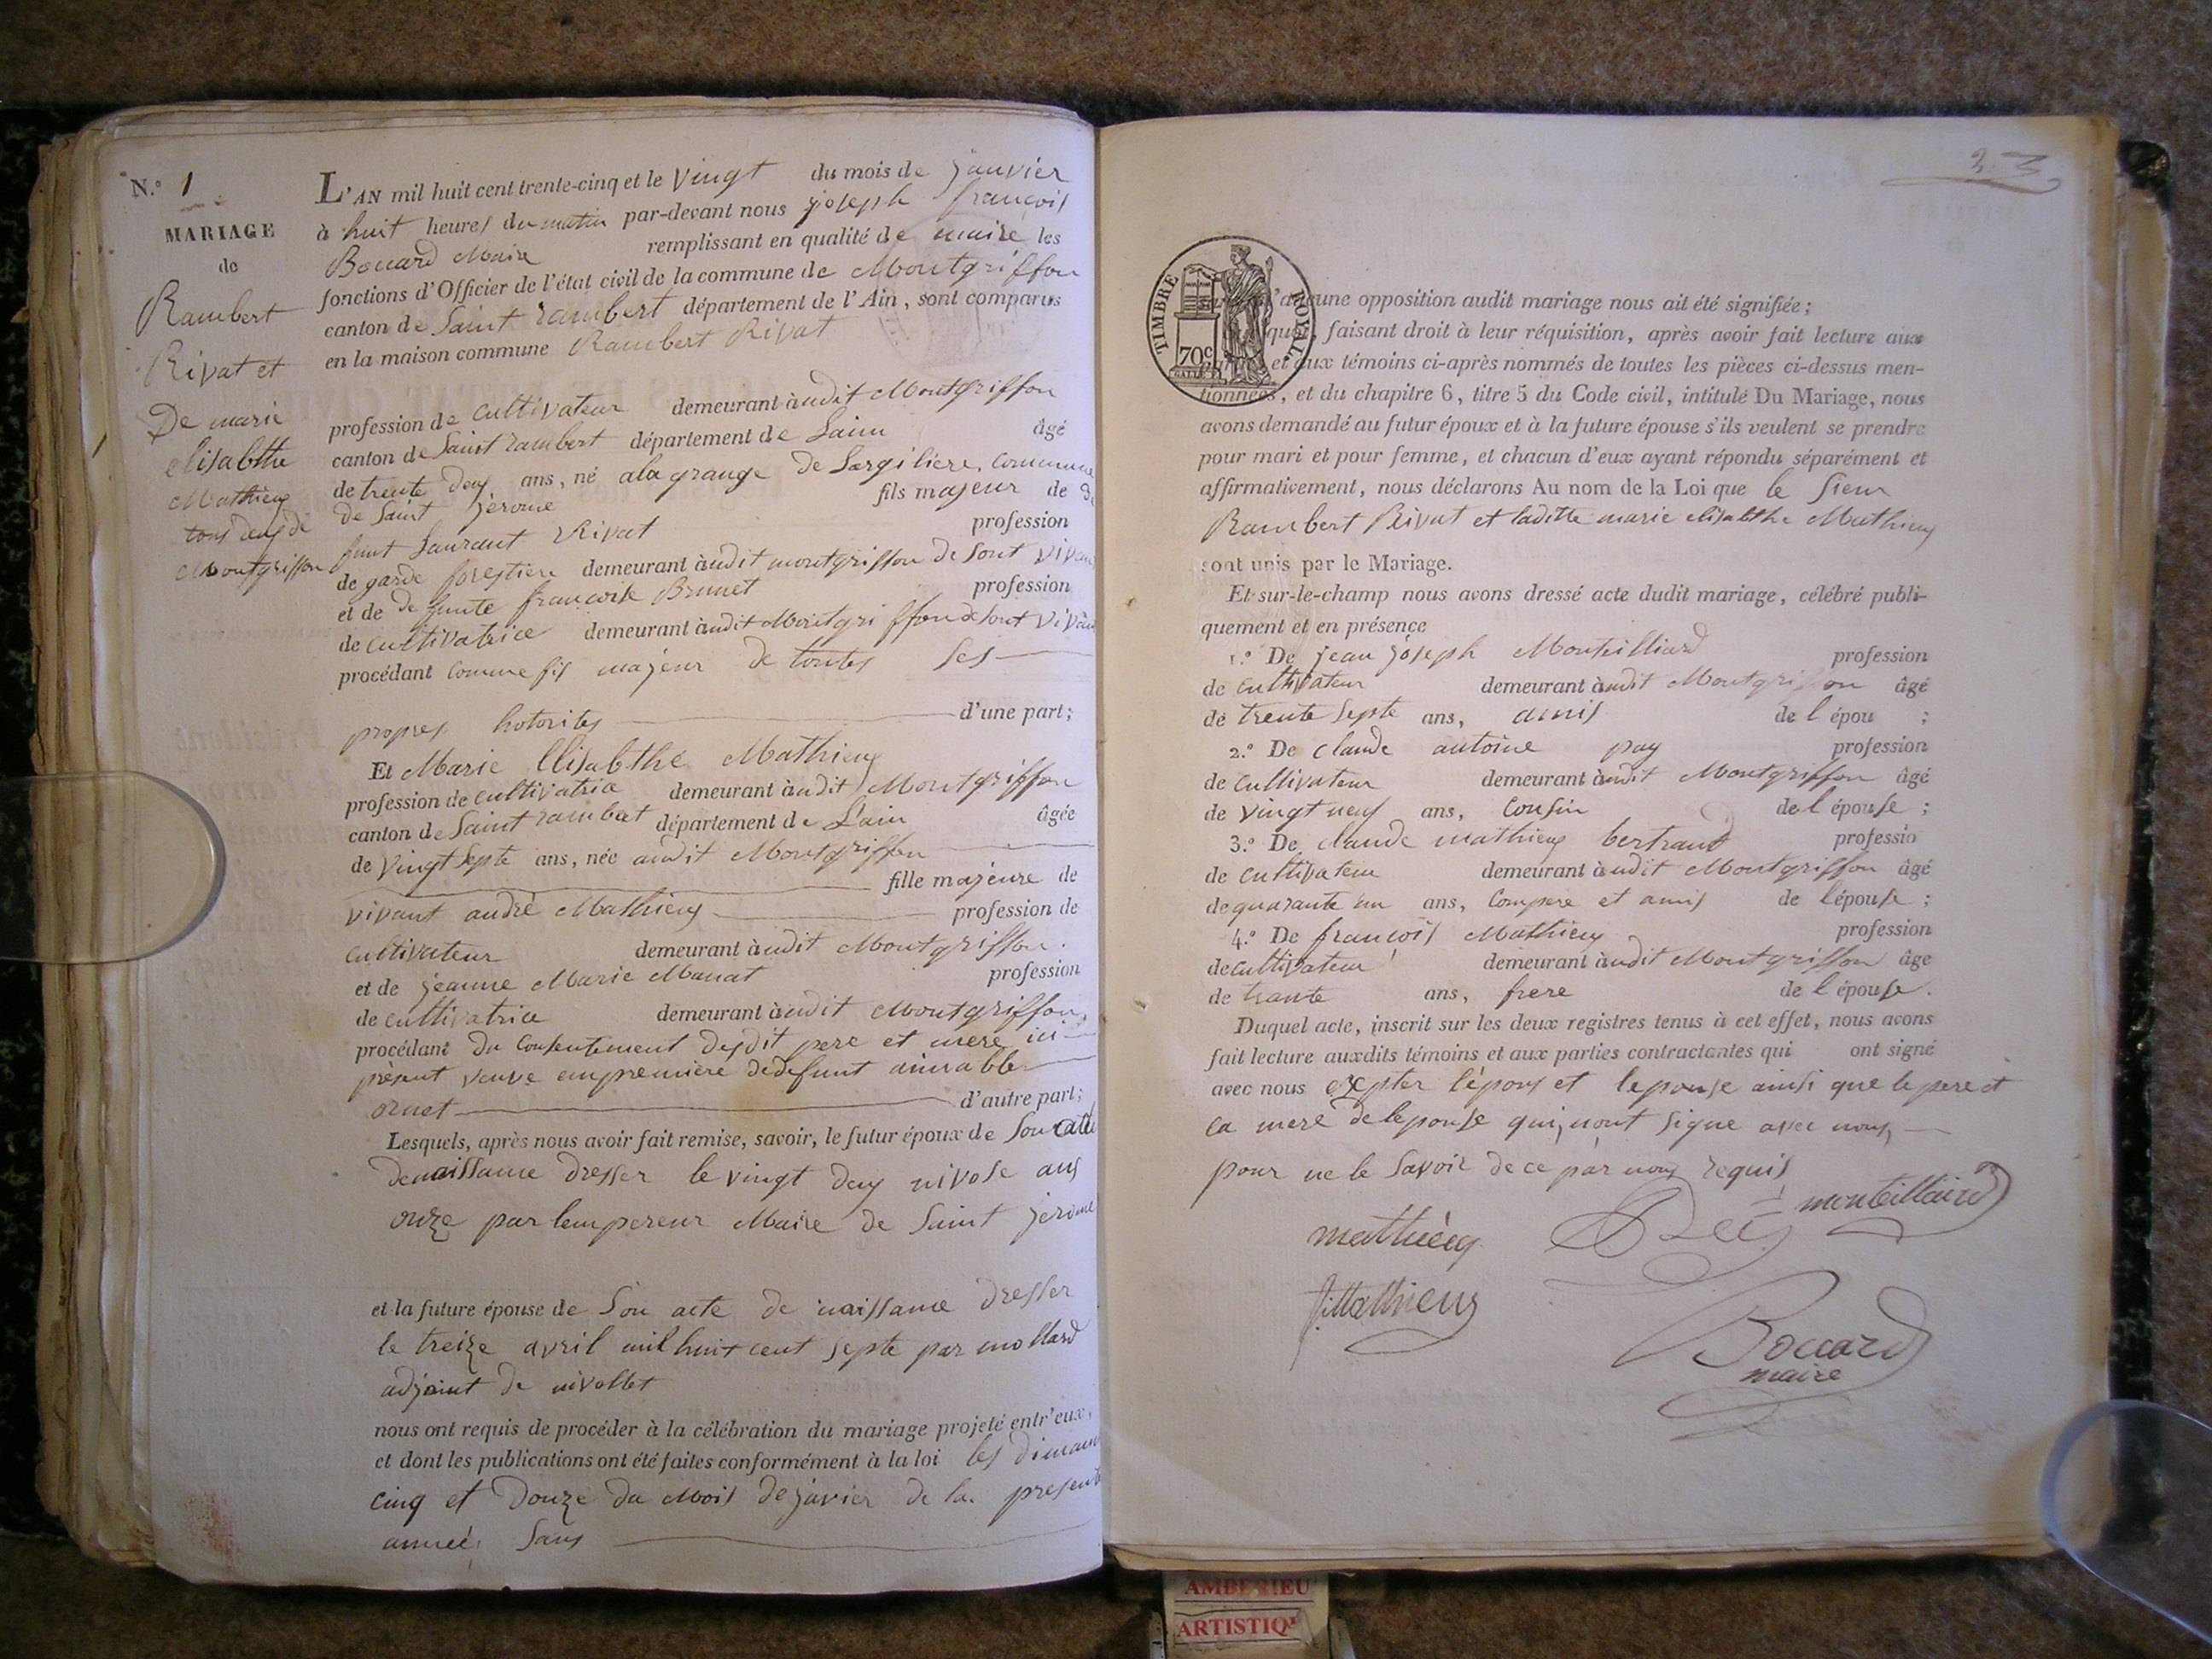 N.° 1
MARIAGE
de
Rambert
Rivat et
De marie
elisabthe
Mathieu
tous deux de
Montgriffon
L'AN mil huit cent trente-cinq et le vingt du mois de janvier
à huit heures du matin par-devant nous joseph françois
Bocard Maire remplissant en qualité de maire les
fonctions d'Officier de l'état civil de la commune de Montgriffon
canton de Saint rambert département de l'Ain, sont comparus
en la maison commune Rambert Rivat
profession de cultivateur demeurant àudit Montgriffon
canton de Saint rambert département de Lain âgé
de trente deux ans, né a la grange de Sargiliere, commune
de Saint jérome fils majeur de de
funt Laurant Rivat profession
de garde forestiere demeurant àudit montgriffon de sont vivan
et de de funte francoise Brunet profession
de cultivatrice demeurant àudit Montgriffon de sont vivan
procédant comme fis majeur de toutes ses
propres hotorites d'une part;
Et Marie Elisabthe Mathieu
profession de cultivatrice demeurant àudit Montgriffon
canton de Saint rambert département de Lain âgée
de vingt septe ans, née audit Montgriffon
fille majeure de
vivant andré Mathieu profession de
cultivateur demeurant àudit Montgriffon.
et de jeanne Marie Manat profession
de cultivatrice demeurant àudit Montgriffon,
procédant du consentement desdit pere et mere ici
présent veuve en premiere de defunt aimable
ornet d'autre part;
Lesquels, après nous avoir fait remise, savoir, le futur époux de son acte
de naissance dresser le vingt deux nivose ans
onze par lempereur Maire de Saint jérome
et la future épouse de son acte de naissance dresser
le treize avril mil huit cent septe par mollard
adjoint de nivollet
nous ont requis de procéder à la célébration du mariage projeté entr'eux,
et dont les publications ont été faites conformément à la loi les diman
cinq et Douze du Mois de javier de la present
année, Sans
2. 3
TIMBRE ROYAL
70c
qu'aucune opposition audit mariage nous ait été signifiée;
quoi, faisant droit à leur réquisition, après avoir fait lecture aux
et aux témoins ci-après nommés de toutes les pièces ci-dessus men-
tionnées, et du chapitre 6, titre 5 du Code civil, intitulé Du Mariage, nous
avons demandé au futur époux et à la future épouse s'ils veulent se prendre
pour mari et pour femme, et chacun d'eux ayant répondu séparément et
affirmativement, nous déclarons Au nom de la Loi que le Sieur
Rambert Rivat et laditte marie elisabthe Mathieu
sont unis par le Mariage.
Et sur-le-champ nous avons dressé acte dudit mariage, célébré publi-
quement et en présence
1.° De jean joseph Monteilliard profession
de cultivateur demeurant àudit Montgriffon âgé
de trente septe ans, amis de l épou ;
2.° De claude antoine pay profession
de cultivateur demeurant àudit Montgriffon âgé
de vingt neuf ans, cousin de l épouse ;
3.° De claude mathieu bertrand professio
de cultivateur demeurant àudit Montgriffon âgé
de quarante un ans, compere et amis de l'épouse ;
4.° De françois Mathieu profession
de cultivateur demeurant àudit Montgriffon âge
de trante ans, frere de l épouse.
Duquel acte, inscrit sur les deux registres tenus à cet effet, nous avons
fait lecture auxdits témoins et aux parties contractantes qui ont signé
avec nous excepter l'épous et lepouse ainsi que le pere et
la mere de lepouse qui, nont signe avec nous,
pour ne le savoir de ce par nous requis
monteilliard
mathieu
f. Mathieu
Boccard
maire
AMBERIEU
ARTISTIQ